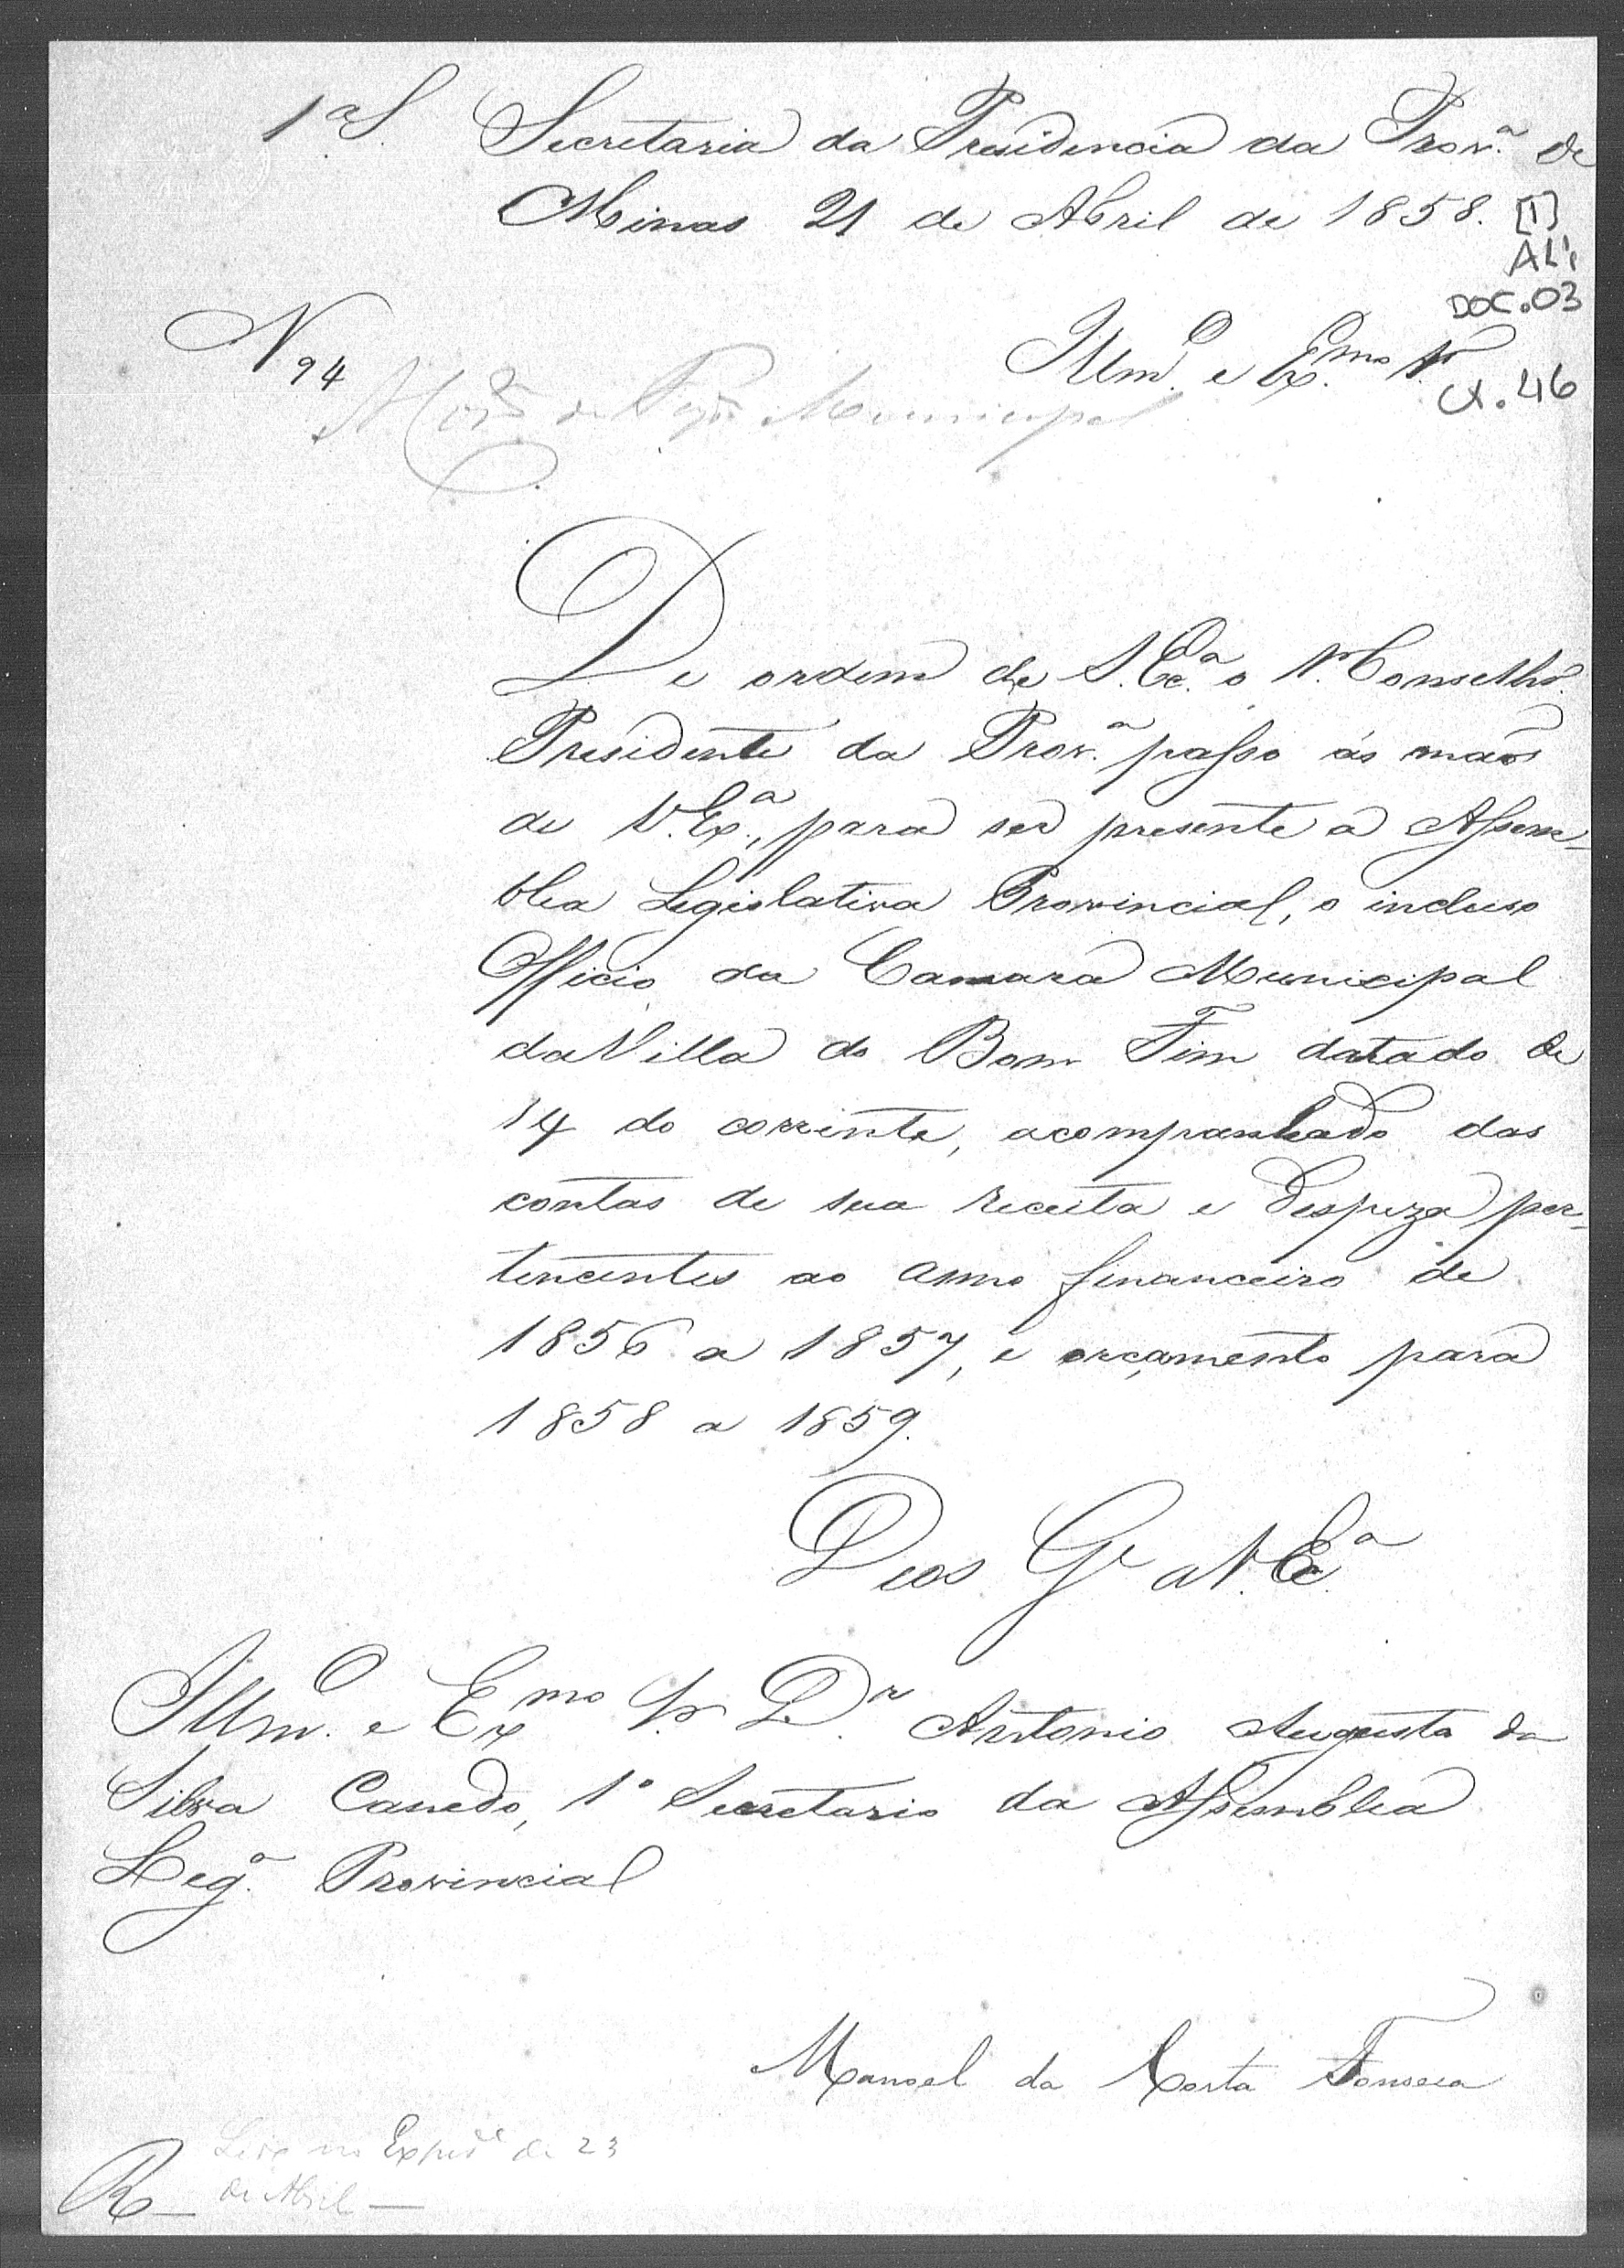 1ª S. Secretaria da Presidencia da Provª. de
Minas 21 de Abril de 1858.
[1]
AL1
DOC.03
Illmº. e Exmo. Sr.
N 94
CX.46
Municipal
De ordem de S. Exª. o Sr. Conselhº.
Presidente da Provª. passo ás mãos
de V. Exª., para ser presente a Assem-
blea Legislativa Provincial, o incluso
Officio da Camara Municipal
da Villa do Bom Fim datado de
14 do corrente, acompanhado das
contas de sua receita e despeza per-
tencentes ao anno financeiro de
1856 a 1857, e orçamento para
1858 a 1859.
Deos Ge a V. Exª.
Illmº. e Exmo Sr. Dr. Antonio Augusto da
Silva Canedo, 1º Secretario da Assemblea
Legª. Provincial
Manoel da Costa Fonseca
Expede de 23
de Abril —
R